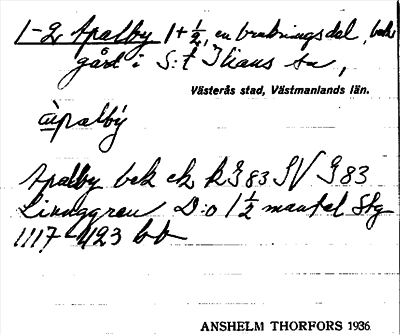 1-2 Apalby 1+½, en brukningsdel, bebi
gård i S:t Ilians sn,
Västerås stad, Västmanlands län.
àpalbý
Apalby bek ek kJ 83 SV J 83
Linnggren D:o 1½ mantal Skg
1117-1123 bb
ANSHELM THORFORS 1936